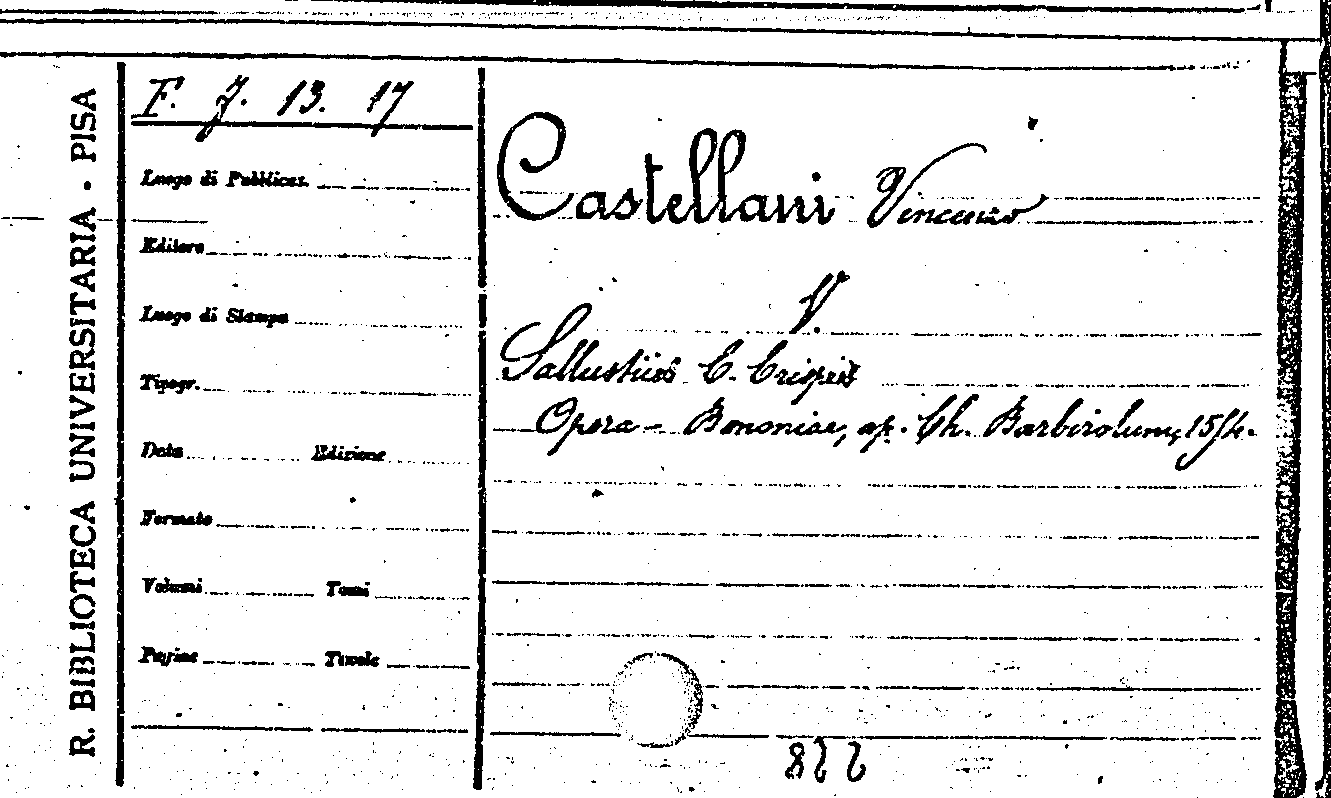 R. BIBLIOTECA UNIVERSITARIA · PISA
F. J. 13. 17
Luogo di Pubblicaz.
Editore
Luogo di Stampa
Tipogr.
Data Edizione
Formato
Volumi Tomi
Pagine Tavole
Castellani Vincenzo
V.
Sallustius C. Crispus
Opera - Bononiae, ap. Ch. Barbirolum,